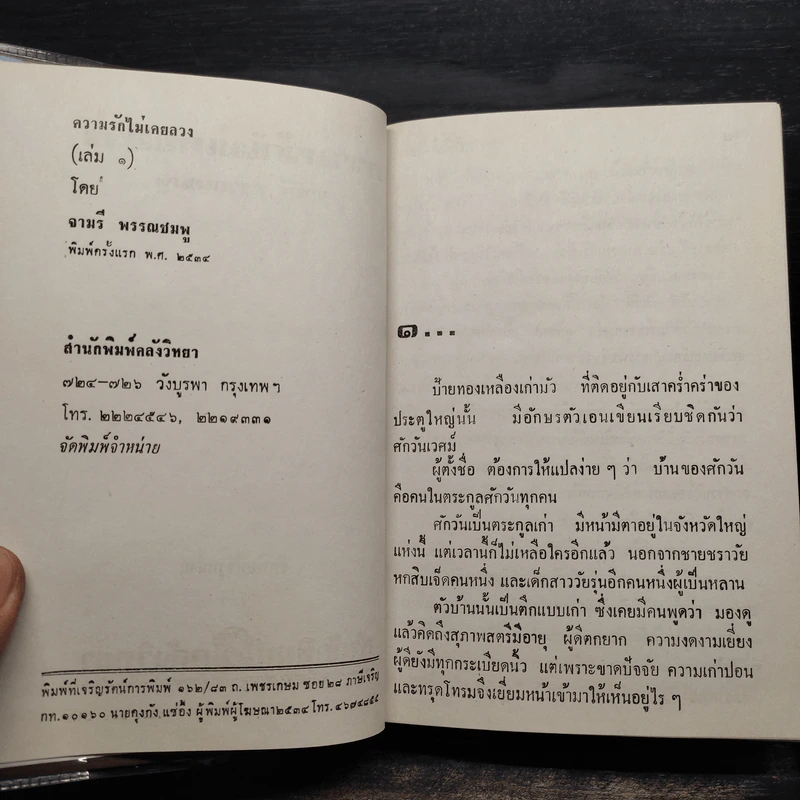 ความรักไม่เคยลวง
(เล่ม ๑)
โดย
จามรี พรรณชมพู
พิมพ์ครั้งแรก พ.ศ. ๒๕๓๔
สำนักพิมพ์คลังวิทยา
๗๒๔-๗๒๖ วังบูรพา กรุงเทพฯ
โทร. ๒๒๒๔๕๔๖, ๒๒๑๙๓๓๑
จัดพิมพ์จำหน่าย
พิมพ์ที่เจริญรัตน์การพิมพ์ ๑๖๒/๘๓ ถ. เพชรเกษม ซอย ๒๘ ภาษีเจริญ
กท.๑๐๑๖๐ นายคุงกัง แซ่อึ้ง ผู้พิมพ์ผู้โฆษณา๒๕๓๔ โทร.
๑...
ป้ายทองเหลืองเก่ามัว ที่ติดอยู่กับเสาคร่ำคร่าของ
ประตูใหญ่นั้น มีอักษรตัวเอนเขียนเรียบชิดกันว่า
ศักวันเวศม์
ผู้ตั้งชื่อ ต้องการให้แปลง่าย ๆ ว่า บ้านของศักวัน
คือคนในตระกูลศักวันทุกคน
ศักวันเป็นตระกูลเก่า มีหน้ามีตาอยู่ในจังหวัดใหญ่
แห่งนี้ แต่เวลานี้ก็ไม่เหลือใครอีกแล้ว นอกจากชายชราวัย
หกสิบเจ็ดคนหนึ่ง และเด็กสาววัยรุ่นอีกคนหนึ่งผู้เป็นหลาน
ตัวบ้านนั้นเป็นตึกแบบเก่า ซึ่งเคยมีคนพูดว่า มองดู
แล้วคิดถึงสุภาพสตรีมีอายุ ผู้ดีตกยาก ความงดงามเยี่ยง
ผู้ดียังมีทุกกระเบียดนิ้ว แต่เพราะขาดปัจจัย ความเก่าปอน
และทรุดโทรมจึงเยี่ยมหน้าเข้ามาให้เห็นอยู่ไร ๆ